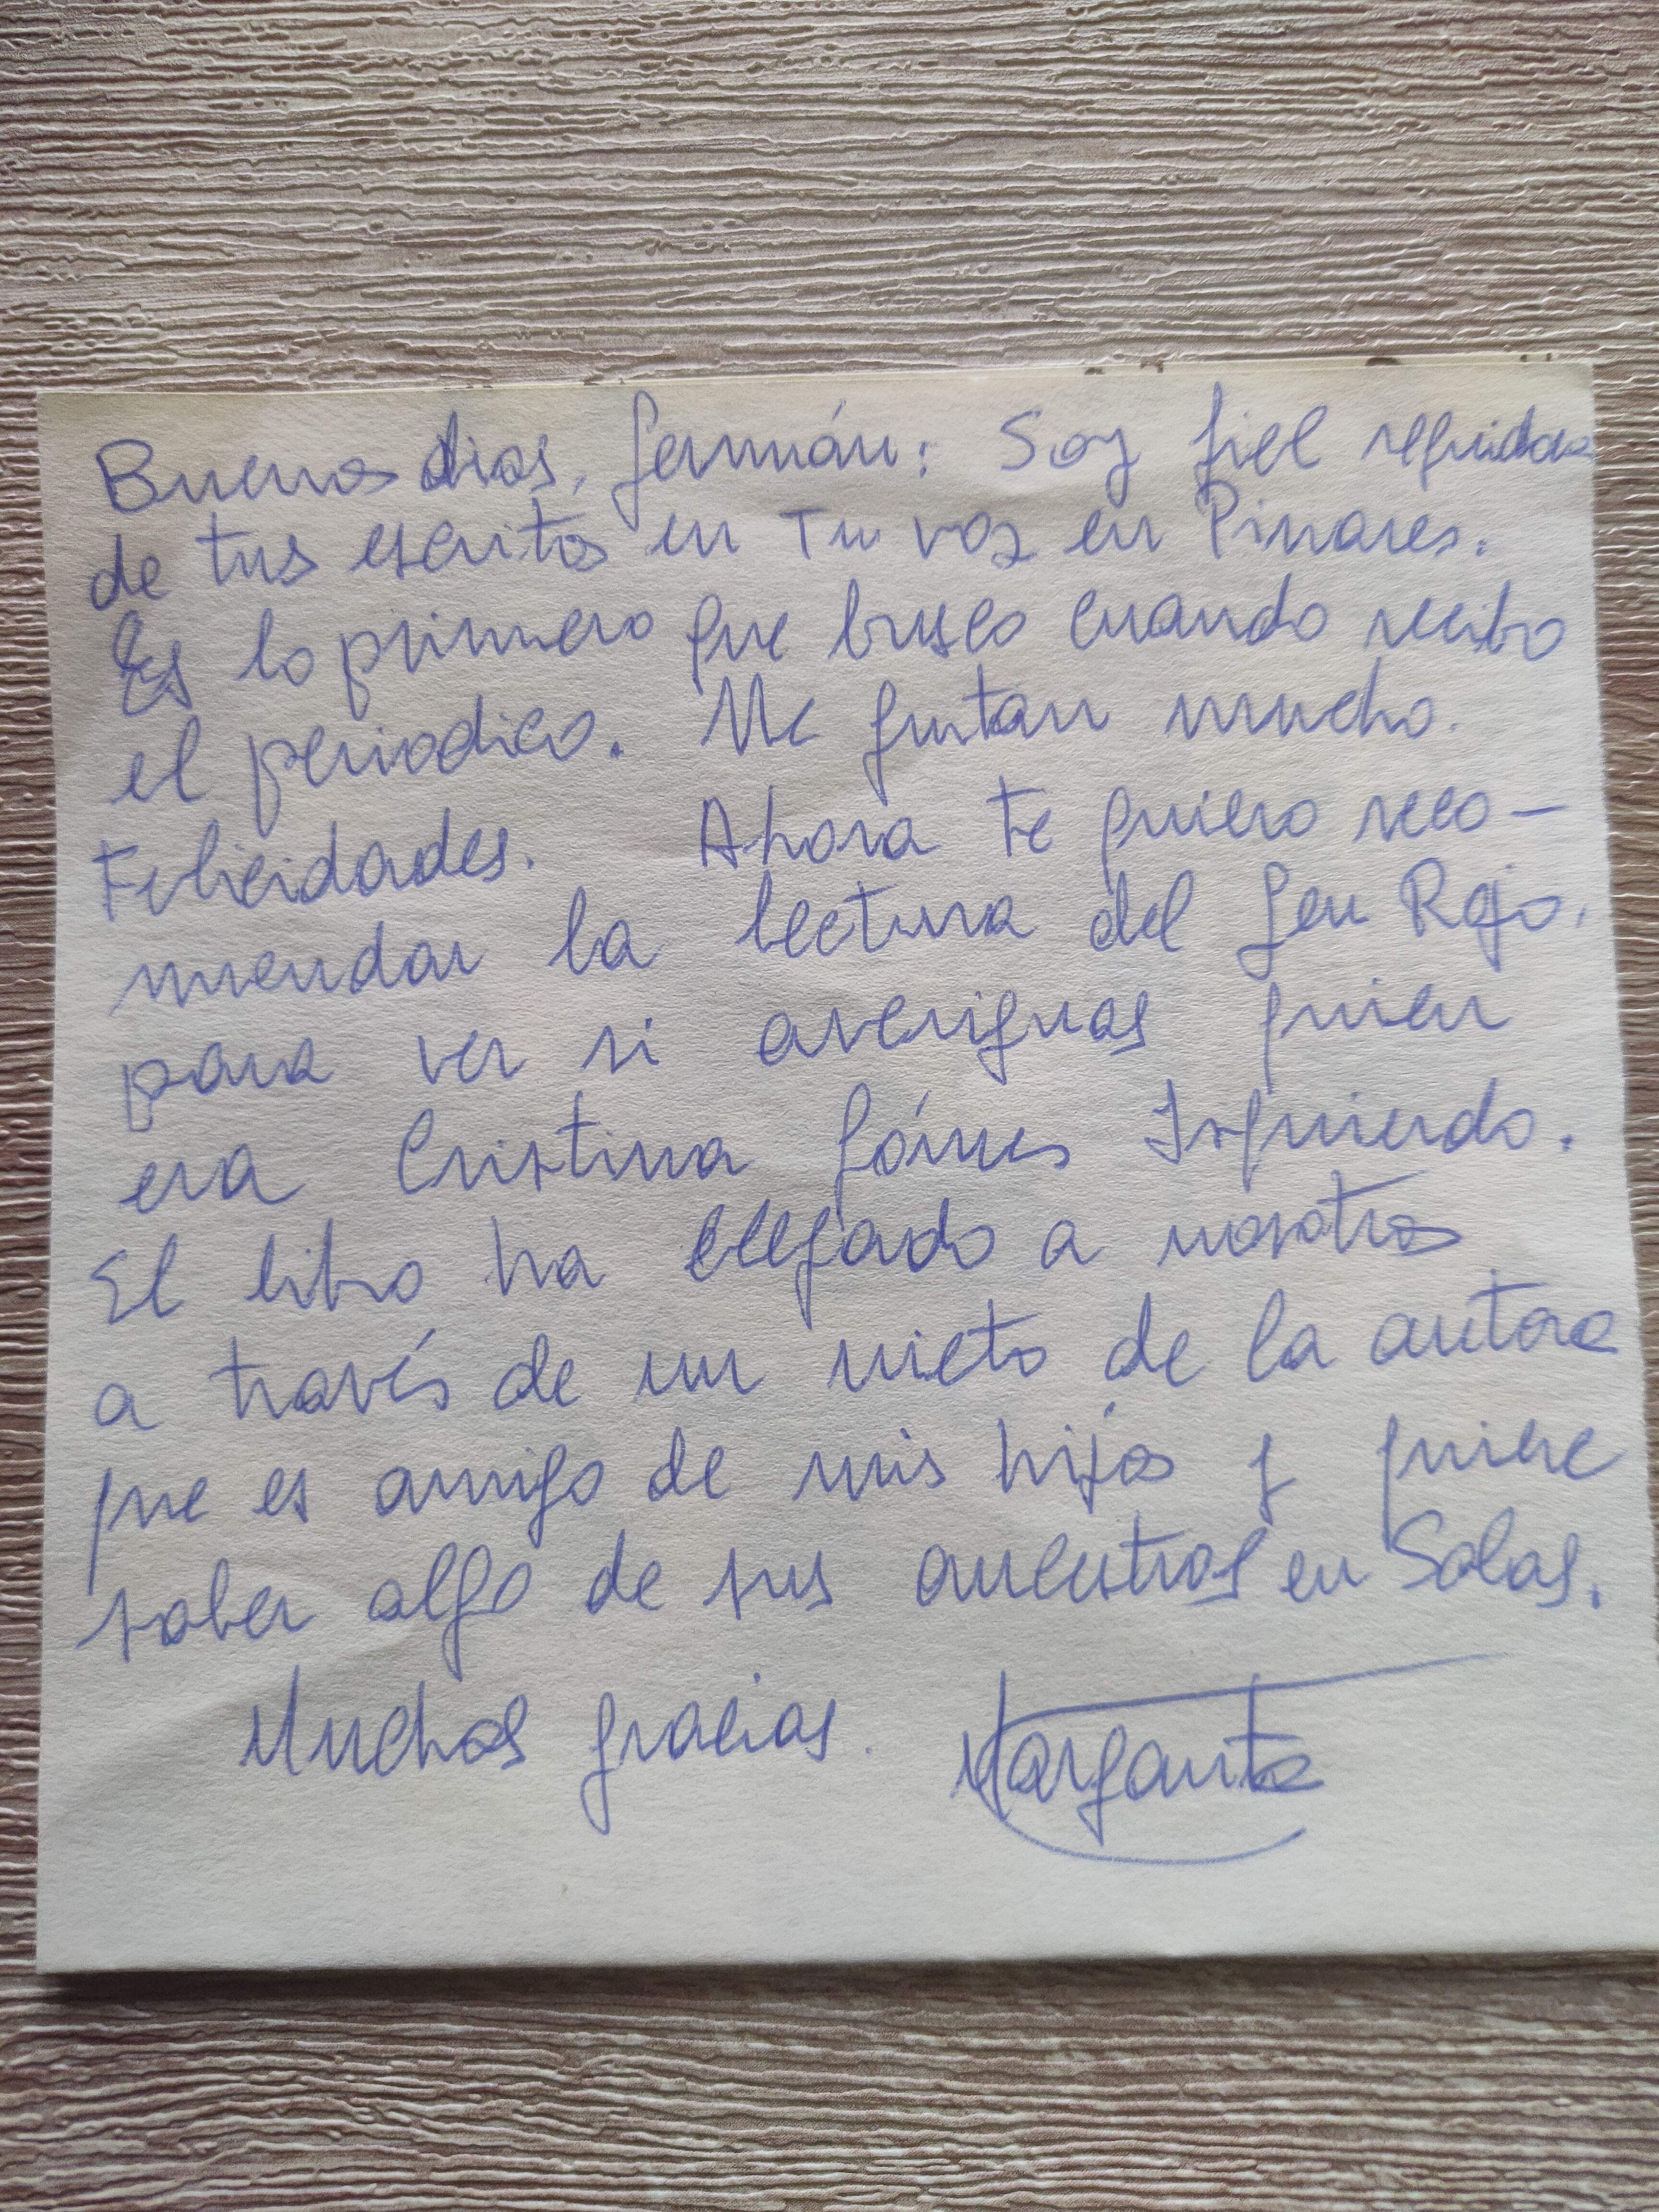 Buenos dias, Germán: Soy fiel seguidora
de tus escritos en Tu voz en Pinares.
Es lo primero que busco cuando recibo
el periodico. Me gustan mucho.
Felicidades. Ahora te quiero reco-
mendar la lectura del Gen Rojo,
para ver si averiguas quien
era Cristina Gómes Izquierdo.
El libro ha llegado a nosotros
a través de un nieto de la autora
que es amigo de mis hijos y quiere
saber algo de sus ancestros en Salas.
Muchas gracias. Margarita